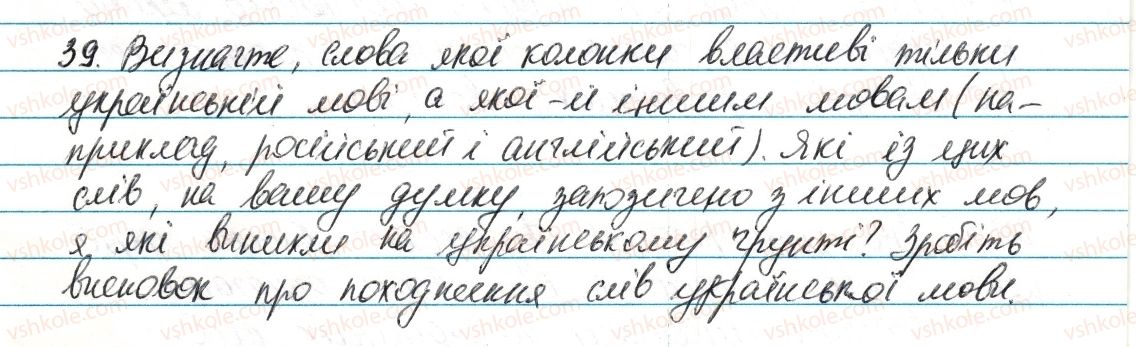 39. Визначте, слова якої колонки властиві тільки
українській мові, а якої -й іншим мовам (на-
приклад, російський і англійський). Які із цих
слів, на вашу думку, запозичено з інших мов,
я які виникли на українському ґрунті? Зробіть
висновок про походження слів української мови.